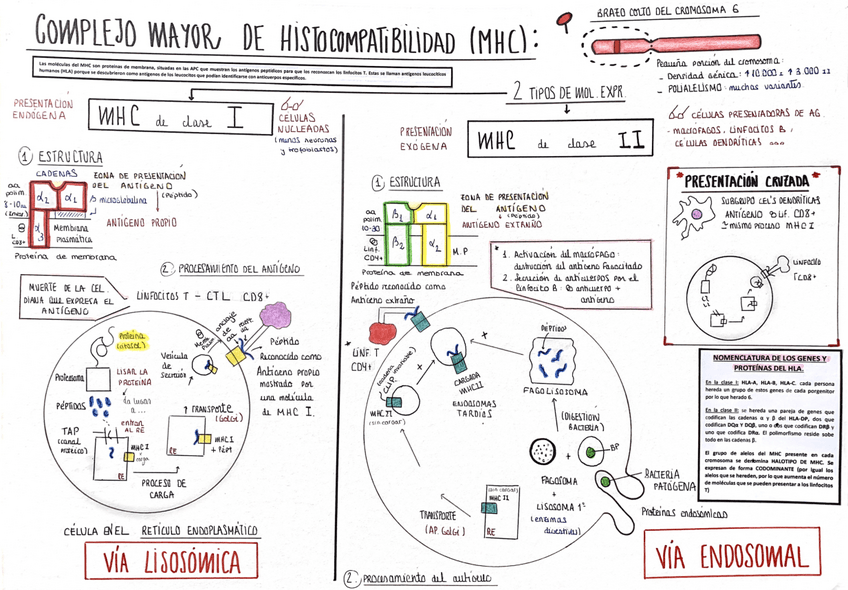 COMPLEJO MAYOR DE HISTOCOMPATIBILIDAD (MHC):
BRAZO CORTO DEL CROMOSOMA 6
Las moléculas del MHC son proteínas de membrana, situadas en las APC que muestran los antígenos peptídicos para que los reconozcan los linfocitos T. Estas se llaman antígenos leucocíticos
humanos (HLA) porque se descubrieron como antígenos de los leucocitos que podían identificarse con anticuerpos específicos.
Pequeña porción del cromosoma:
- Densidad génica:
- POLIALELISMO: muchas variantes.
2 TIPOS DE MOL. EXPR.
PRESENTACIÓN
ENDÓGENA
MHC de clase I
CÉLULAS
NUCLEADAS
(menos neuronas
y trofoblastos)
PRESENTACIÓN
EXÓGENA
MHC de clase II
CÉLULAS PRESENTADORAS DE AG
- MACRÓFAGOS, LINFOCITOS B,
CÉLULAS DENDRÍTICAS ...
1 ESTRUCTURA
CADENAS
ZONA DE PRESENTACIÓN
DEL ANTÍGENO
(Péptido)
aa
polim.
8-10
α2 α1
microglobulina
ANTÍGENO PROPIO
CD8+
α3
Membrana
plasmática
Proteína de membrana
2. PROCESAMIENTO DEL ANTÍGENO
MUERTE DE LA CEL.
DIANA QUE EXPRESA EL
ANTÍGENO
LINFOCITOS T - CTL CD8+
Proteína
Proteasoma
LISAR LA
PROTEÍNA
PÉPTIDOS
la lisosa
a ...
entran
AL RE
TAP
(canal
MHC I
RE
PROCESO DE
CARGA
Vesícula
de
secreción
↑ TRANSPORTE
(GOLGI)
MHC I
+ PÉP.
RE
Péptido
Reconocido como
Antígeno propio
mostrado por
una molécula
de MHC I.
CÉLULA EN EL RETÍCULO ENDOPLASMÁTICO
VÍA LISOSÓMICA
1 ESTRUCTURA
aa
polim
10-30
β1 α1
β2 α2
Linf.
CD4+
M.P
ZONA DE PRESENTACIÓN
DEL ANTÍGENO
(Péptido)
ANTÍGENO EXTRAÑO
Proteína de membrana
Péptido reconocido como
Antígeno extraño
* 1. Activación del macrófago:
destrucción del antígeno fagocitado
2. Secreción de anticuerpos por el
linfocito B: anticuerpo +
antígeno
* LINF. T
CD4+
MHC II
CARGADA
MHC II
ENDOSOMAS
TARDÍOS
PÉPTIDOS
FAGOLISOSOMA
(DIGESTIÓN
BACTERIA)
BP
FAGOSOMA
+
LISOSOMA 1º
(enzimas
digestivas)
BACTERIA
PATÓGENA
Proteínas endosómicas
TRANSPORTE
(AP. GOLGI)
MHC II
RE
2. PROCESAMIENTO del antígeno
VÍA ENDOSOMAL
PRESENTACIÓN CRUZADA
SUBGRUPO CEL'S DENDRÍTICAS
ANTÍGENO LIF. CD8+
mismo proceso MHC I
LINFOCITO
TCD8+
NOMENCLATURA DE LOS GENES Y
PROTEÍNAS DEL HLA
En la clase I: HLA-A, HLA-B, HLA-C. cada persona
hereda un grupo de estos genes de cada progenitor
por lo que heredo 6.
En la clase II: se hereda una pareja de genes que
codifican las cadenas α y β del HLA-DP, dos que
codifican DQα Y DQβ, uno o dos que codifican DRβ y
uno que codifica DRα. El polimorfismo reside sobe
todo en las cadenas β.
El grupo de alelos del MHC presente en cada
cromosoma se denomina HALOTIPO DE MHC. Se
expresan de forma CODOMINANTE (por igual los
alelos que se heredan, por lo que aumenta el número
de moléculas que se pueden presentar a los linfocitos
T)